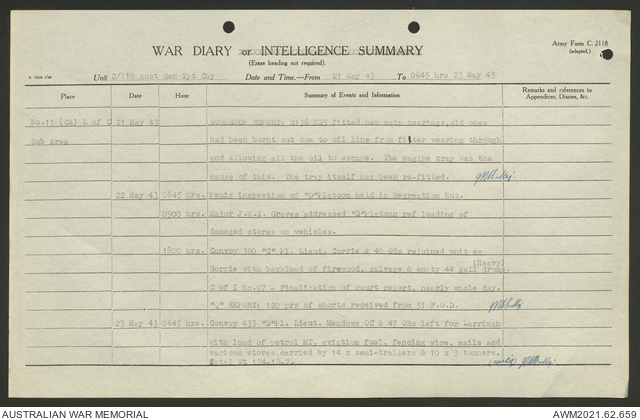 WAR DIARY or INTELLIGENCE SUMMARY
Army Form C. 2118
(adapted.)
(Erase heading not required).
Unit 2/110 Aust Gen Tpt Coy Date and Time.—From 21 May 43 To 0645 hrs 23 May 43
Place Date Hour Summary of Events and Information Remarks and references to Appendices, Diaries, &c.
No.11 (CA) L of C 21 May 43 WORKSHOP REPORT: R136 K35 fitted new main bearings, old ones
Sub Area had been burnt out due to oil line from filter wearing through
and allowing all the oil to escape. The engine tray was the
cause of this. The tray itself has been re-fitted.
22 May 43 0845 hrs. Penis inspection of "D"Platoon held in Recreation Hut.
0900 hrs. Major J.W.S. Graves addressed "D"Platoon ref loading of
damaged stores on vehicles.
1800 hrs. Convoy 390 "C" Pl. Lieut. Currie & 40 ORs rejoined unit ex
(Heavy)
Gorrie with backload of firewood, salvage & empty 44 gall drums.
C of I No.97 - Finalization of court report, nearly whole day.
"Q" REPORT: 120 prs of shorts received from 51 F.O.D.
23 May 43 0645 hrs. Convoy 433 "D"Pl. Lieut. Meadows OC & 47 ORs left for Larrimah
with load of petrol MT, aviation fuel, fencing wire, mails and
various stores carried by 14 x semi-trailers & 10 x 3 tonners.
Total Wt 124.12.2.
AUSTRALIAN WAR MEMORIAL
AWM2021.62.659